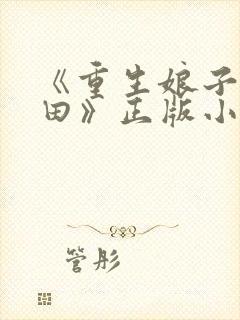 《重生娘子
田》正版小
管彤